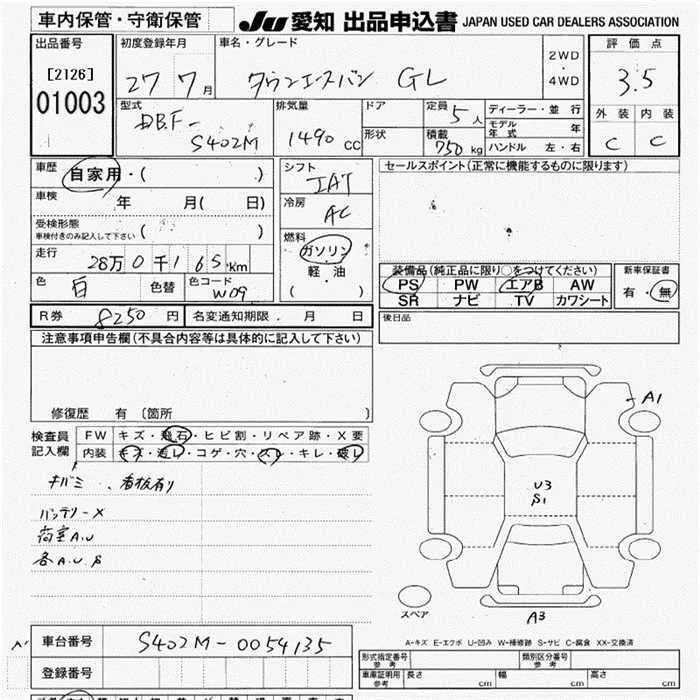 車内保管・守衛保管
JU 愛知 出品申込書 JAPAN USED CAR DEALERS ASSOCIATION
出品番号
[2126]
01003
初度登録年月
27 7月
車名・グレード
タウンエースバン GL
2WD
・
4WD
評価点
3.5
外装 内装
C C
型式
DBF-
S402M
排気量
1490 cc
ドア
形状
定員 5人
積載 750 kg
ディーラー・並行
モデル年式 年
ハンドル 左・右
車歴 自家用・( )
車検 年 月( 日)
受検形態
車検付きのみ記入して下さい ( )
走行
28万0千165km
色 白 色替 色コード W09
シフト
IAT
冷房
AC
燃料
ガソリン
軽・油
( )
セールスポイント(正常に機能するものに限ります)
装備品(純正品に限り○をつけてください)
PS PW エアB AW
SR ナビ TV カワシート
新車保証書
有・無
後日品
R券 8250 円 名変通知期限. 月 日
注意事項申告欄(不具合内容等は具体的に記入して下さい)
修復歴 有 〔箇所 〕
検査員
記入欄
FW キズ・飛石・ヒビ割・リペア跡・X要
内装 キズ・汚レ・コゲ・穴・スレ・キレ・破レ
キバミ、看板有り
バッテリーX
荷室A.U
各A.U.S
A1
U3
S1
A3
スペア
A-キズ E-エクボ U-凹み W-補修跡 S-サビ C-腐食 XX-交換済
車台番号 S402M-0054135
登録番号
形式指定番号
参考
類別区分番号
参考
車庫証明用
参考
長さ cm 幅 cm 高さ cm